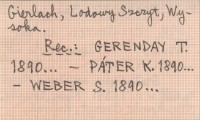 Gierlach, Lodowy Szczyt, Wy-
soka.
Rec.: GERENDAY T.
1890... – PÁTER K. 1890...
– WEBER S. 1890...